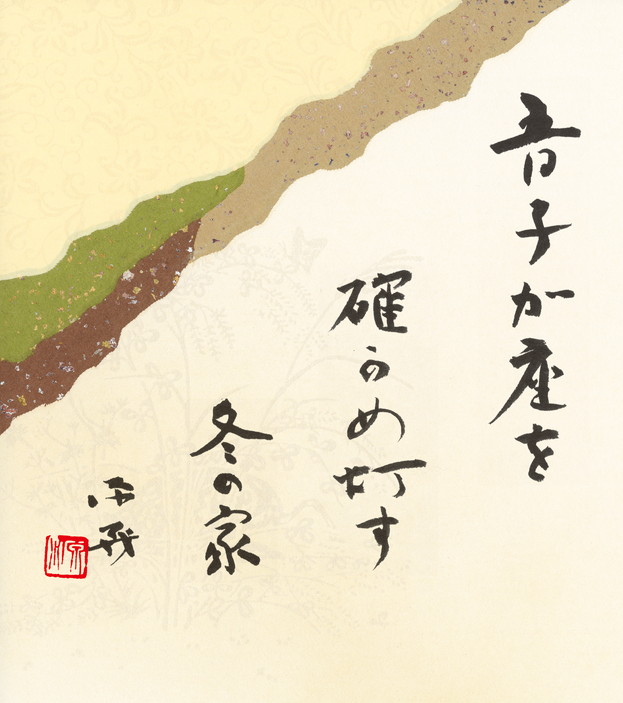 吾子が座を
確かめ灯す
冬の家
源義